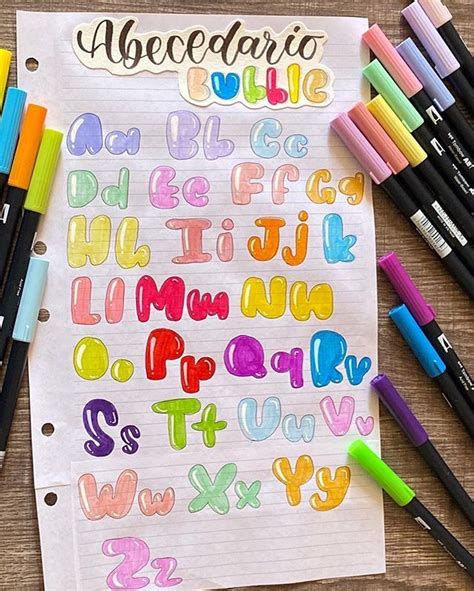 Abecedario
Bubble
Aa Bb Cc
Dd Ee Ff Gg
Hh Ii Jj k
Ll Mm Nn
Oo Pp Qq Rr
Ss Tt Uu Vv
Ww Xx Yy
Zz